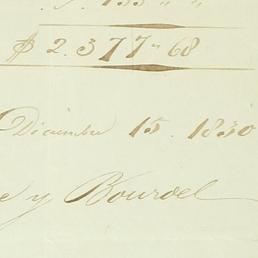 $ 2.377" 68
Dicimbre 15. 1830
e y Bouroel